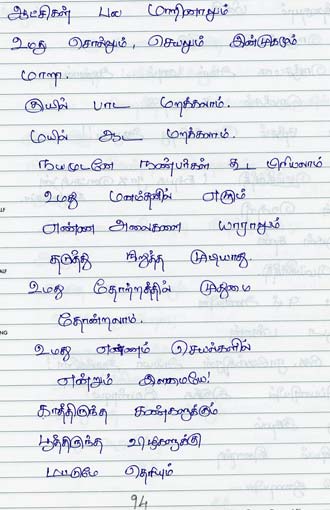 ஆட்சிகள் பல மாறினாலும்
உமது சொல்லும், செயலும் இன்முகமும்
மாறா.
குயில் பாட மறக்கலாம்.
மயில் ஆட மறக்கலாம்.
நயமுடனே நண்பர்கள் கூட பிரியலாம்
உமது மனம்தனில் எழும்
எண்ண அலைகளை யாராலும்
தடுத்து நிறுத்த முடியாது.
உமது தோற்றத்தில் முதுமை
தோன்றலாம்.
உமது எண்ணம் செயல்களில்
என்றும் இளமையே!
காத்திருந்த கண்களுக்கும்
பூத்திருந்த விழிகளுக்கு
மட்டுமே தெரியும்
94